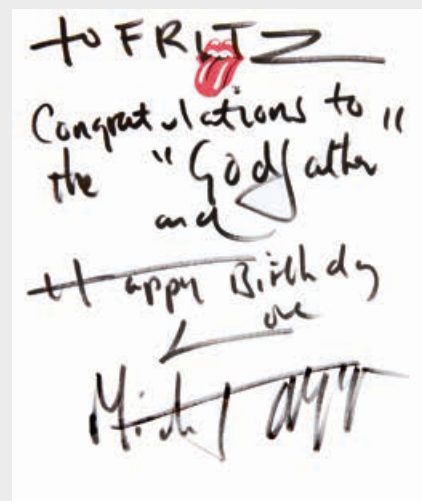 to FRITZ
Congratulations to
the "Godfather"
and
Happy Birthday
Love
Mick Taylor